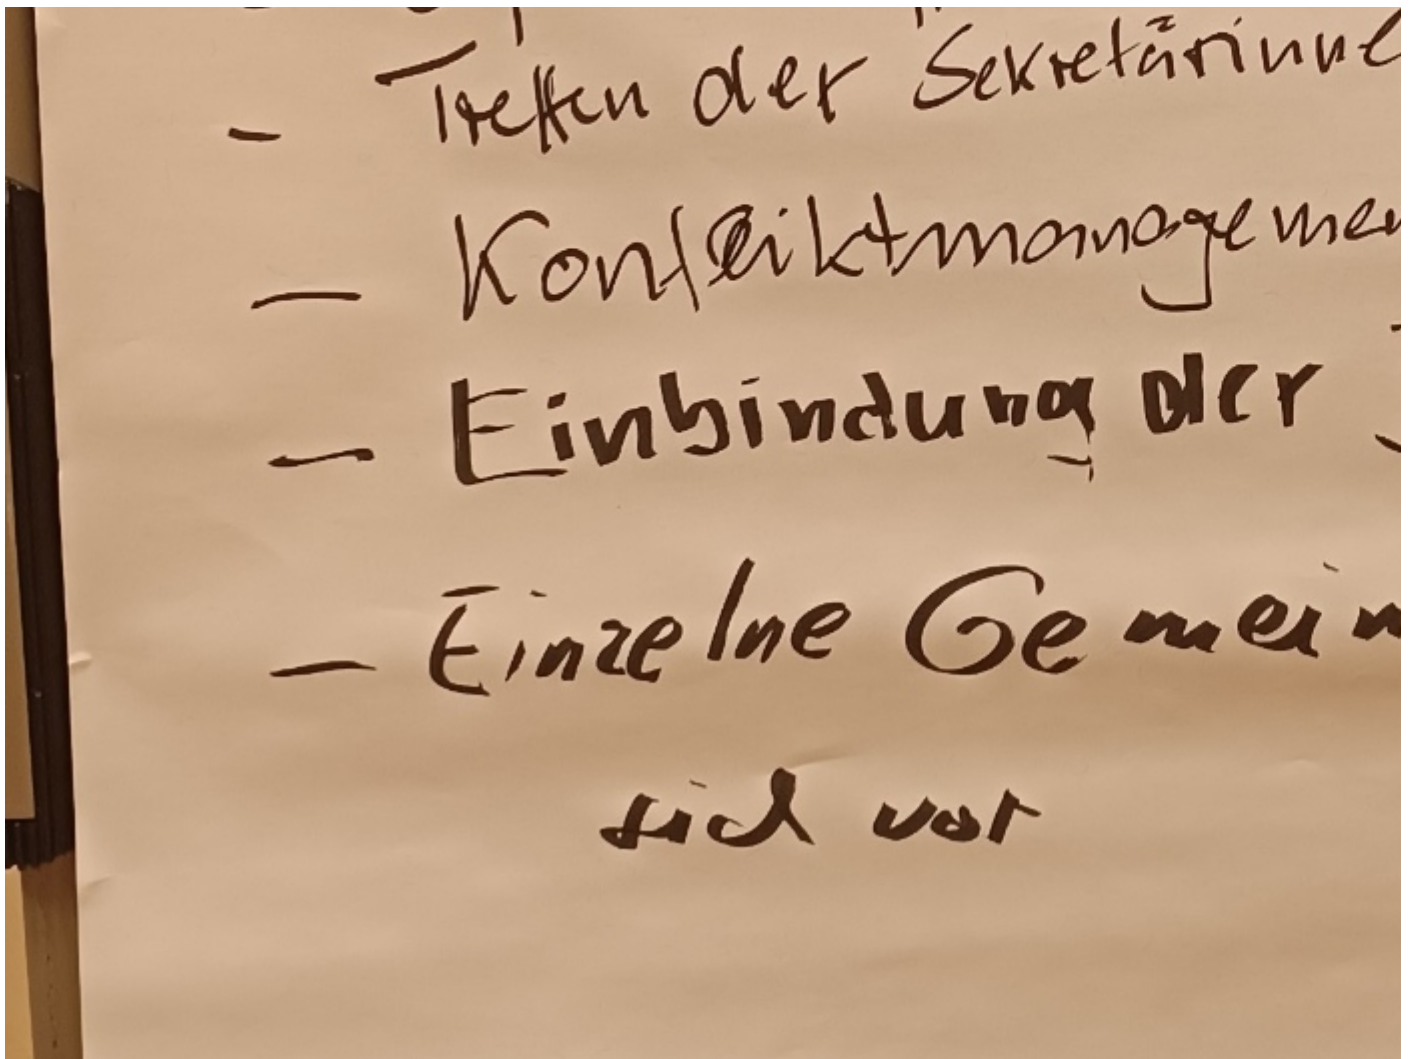 - Treffen der Sekretärinne
- Konfliktmanagemen
- Einbindung der
- Einzelne Gemein
sich vor